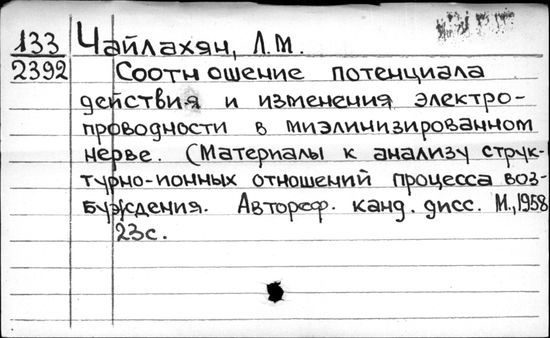 133 Чайлахян, Л.М.
2392 Соотношение потенциала
действия и изменения электро-
проводности в миэлинизированном
нерве. (Материалы к анализу струк-
турно-ионных отношений процесса воз-
буждения. Автореф. канд. дисс. М., 1958
23с.